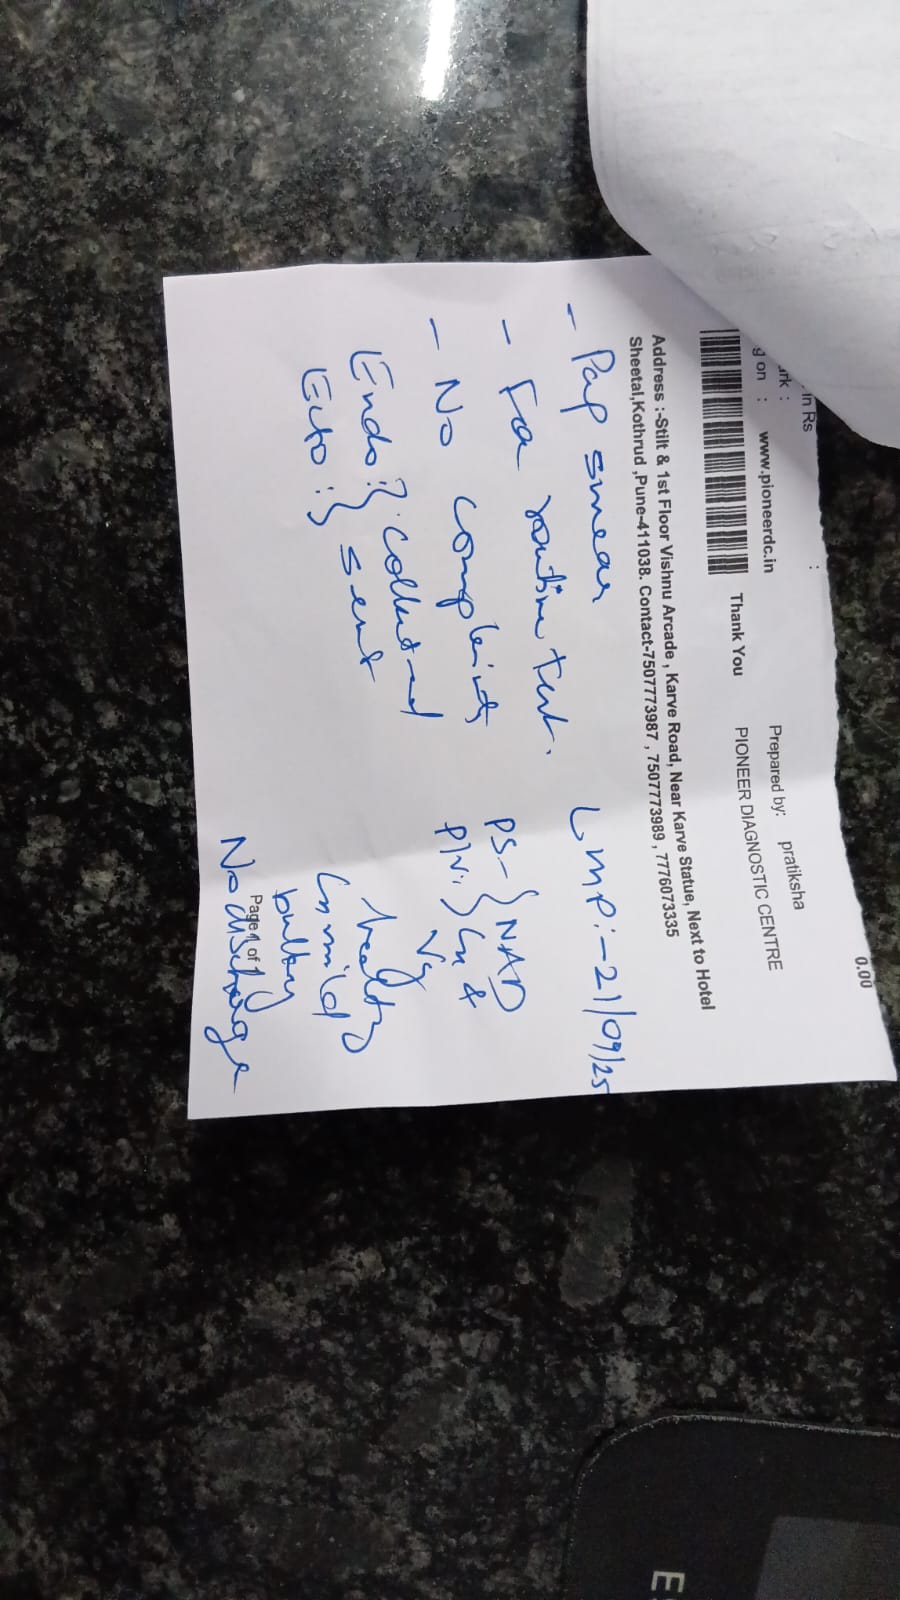 0.00
in Rs
:
rk :
Prepared by: pratiksha
g on : www.pioneerdc.in
Thank You PIONEER DIAGNOSTIC CENTRE
Address :-Stilt & 1st Floor Vishnu Arcade , Karve Road, Near Karve Statue, Next to Hotel
Sheetal,Kothrud ,Pune-411038. Contact-7507773987 , 7507773989 , 7776073335
- Pap smear LMP:-21/09/25
- For routine test.
PS- } NAD
- No complaints
P/V: } Cx &
Vg
Endo : } collected
Ecto : } sent
healthy
Cx mild
bulky
Page 1 of 1
No discharge
E